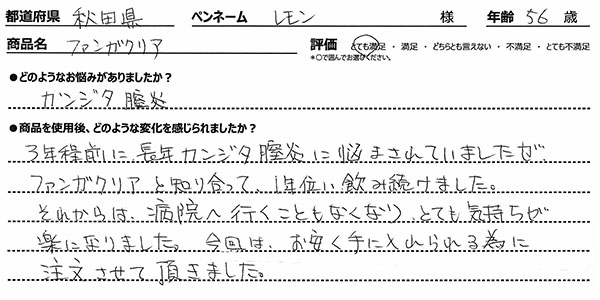 都道府県 秋田県 ペンネーム レモン 様 年齢 56 歳
商品名 ファンガクリア 評価 とても満足 ・ 満足 ・ どちらとも言えない ・ 不満足 ・ とても不満足
*○で囲んでお選びください。
●どのようなお悩みがありましたか？
カンジタ膣炎
●商品を使用後、どのような変化を感じられましたか？
3年程前に、長年カンジタ膣炎に悩まされていましたが、
ファンガクリアと知り合って、1年位い飲み続けました。
それからは、病院へ行くこともなくなり、とても気持ちが
楽になりました。今回は、お安く手に入れられる為に
注文させて頂きました。